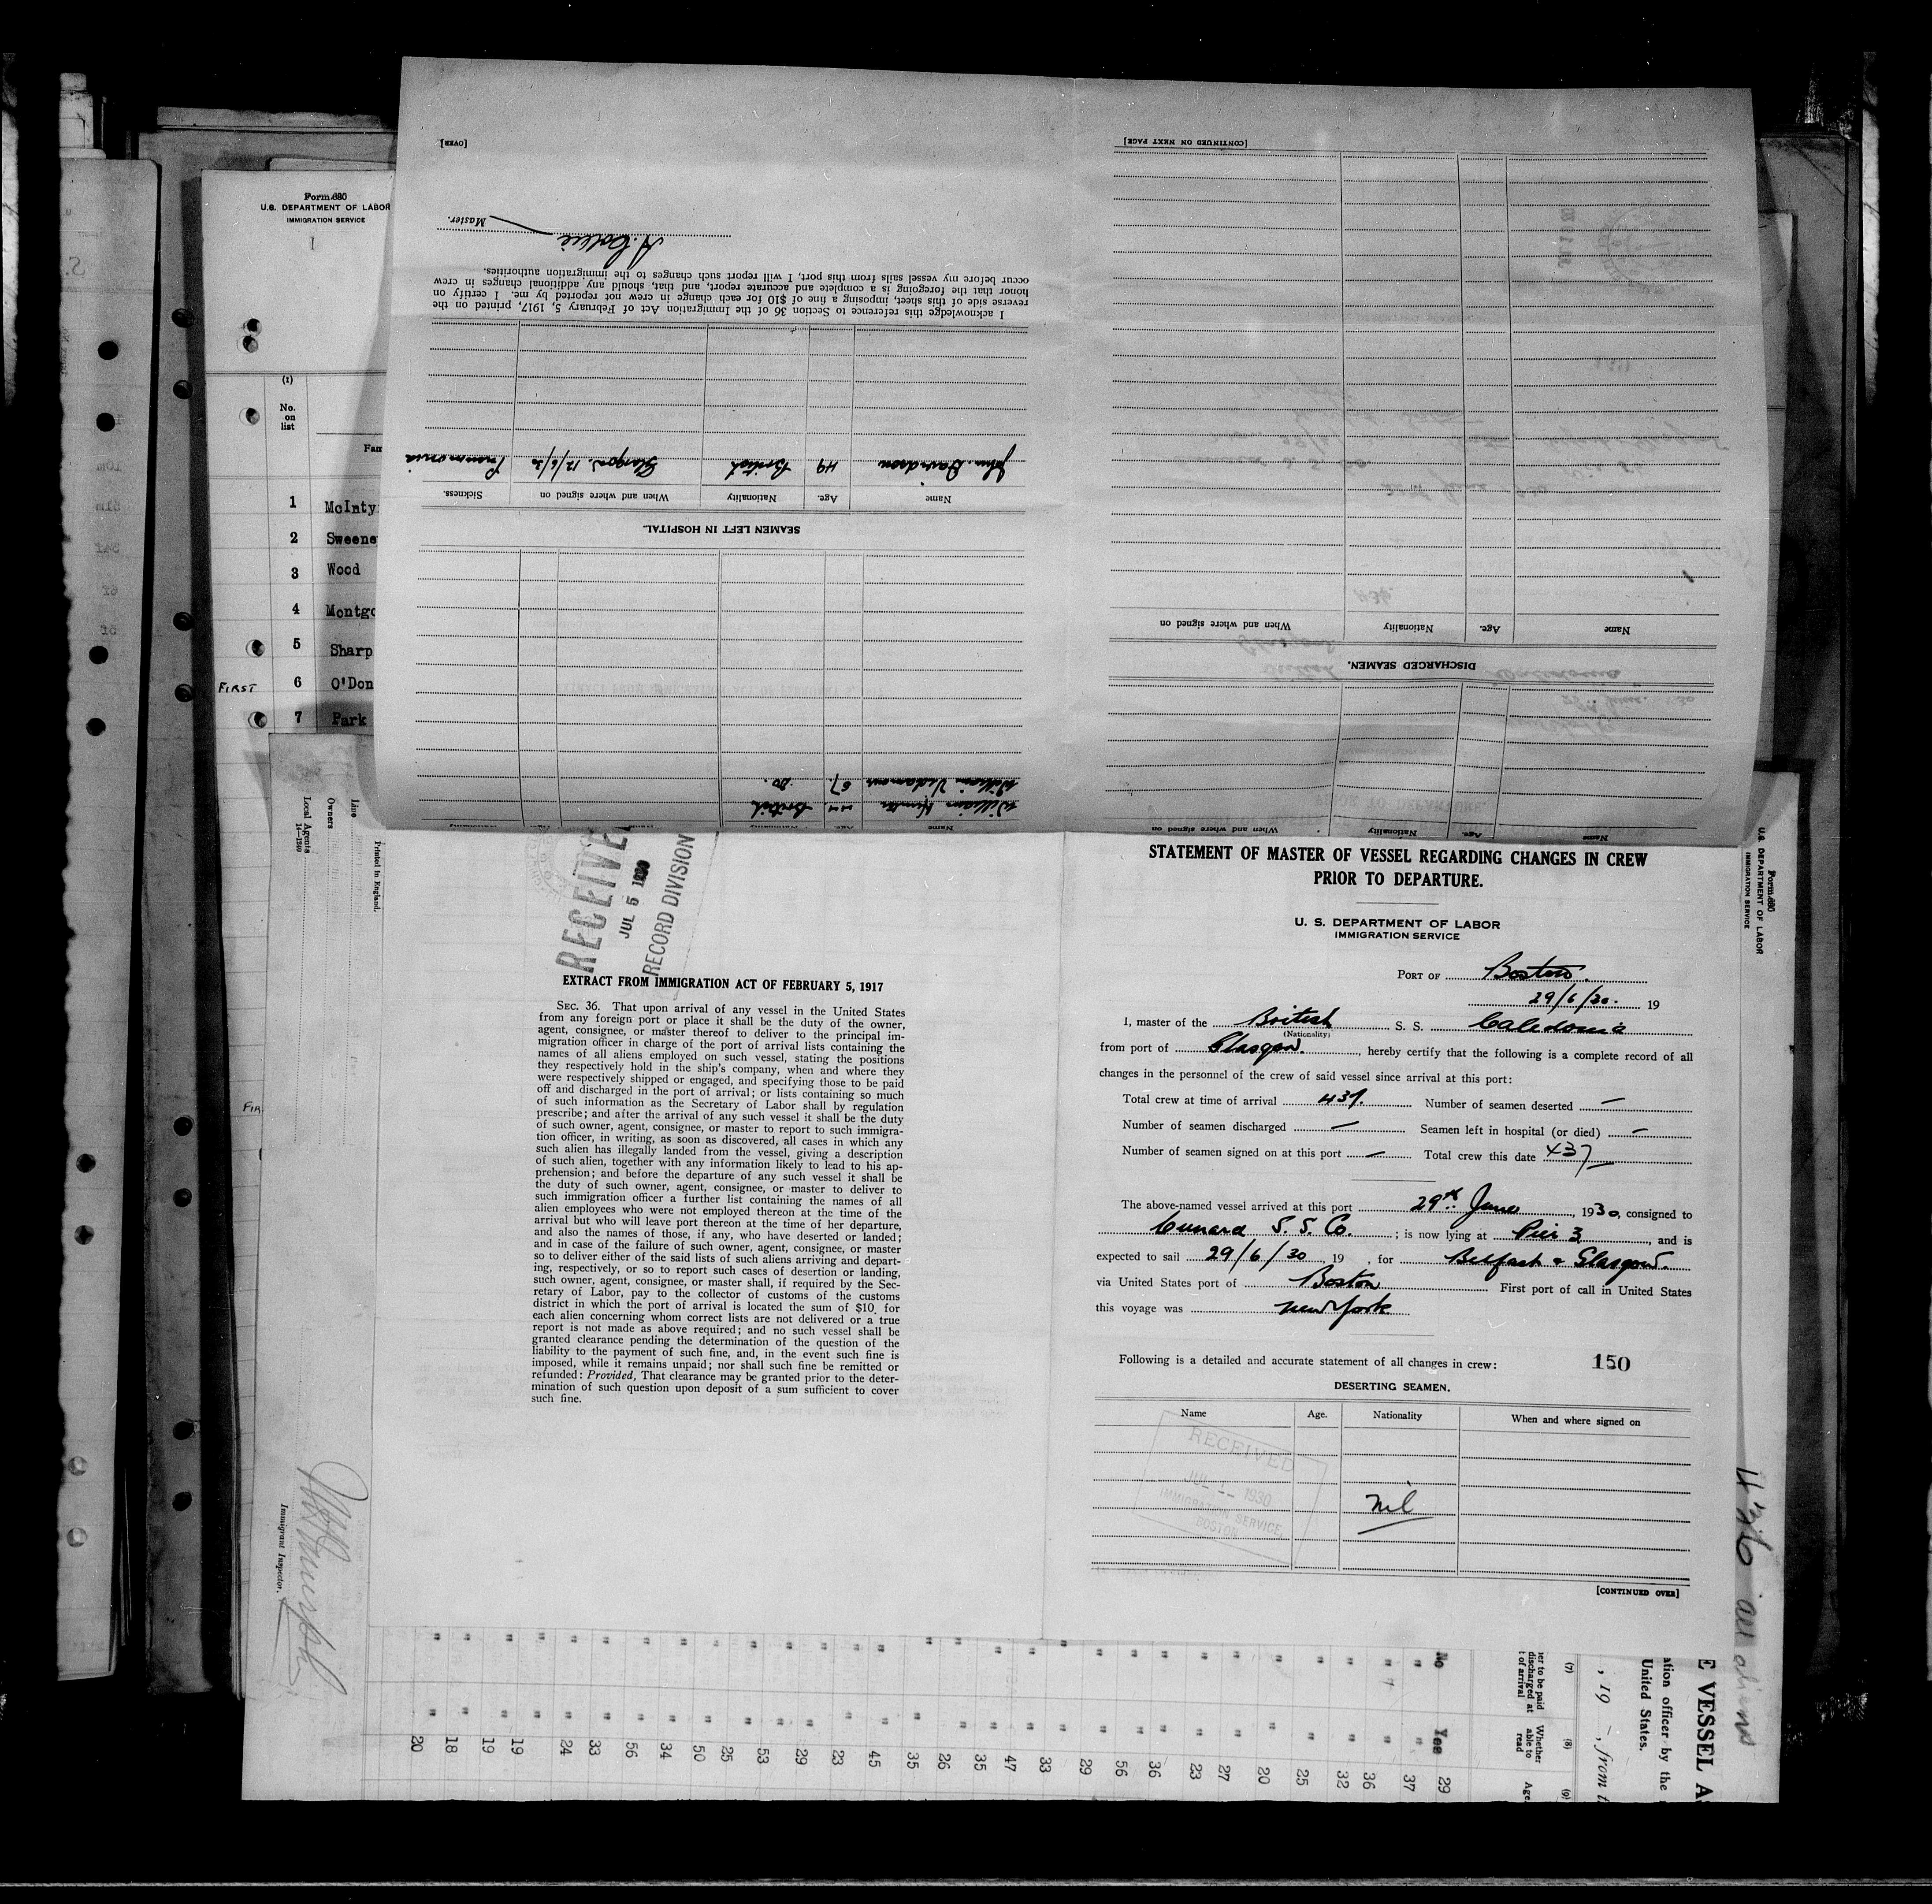 Form 680
U.S. DEPARTMENT OF LABOR
IMMIGRATION SERVICE
(1)
No.
on
list
Fam
1 McInty
2 Sweene
3 Wood
4 Montgo
5 Sharp
FIRST 6 O'Don
7 Park
[CONTINUED ON NEXT PAGE]
DISCHARGED SEAMEN.
Name Age. Nationality When and where signed on
Name Age. Nationality When and where signed on
William Hunter 44 British
William 67. do.
SEAMEN LEFT IN HOSPITAL.
Name Age. Nationality When and where signed on Sickness.
John Davidson 49 British Glasgow. 12/6/30 Pneumonia
I acknowledge this reference to Section 36 of the Immigration Act of February 5, 1917, printed on the
reverse side of this sheet, imposing a fine of $10 for each change in crew not reported by me. I certify on
honor that the foregoing is a complete and accurate report, and that, should any additional changes in crew
occur before my vessel sails from this port, I will report such changes to the immigration authorities.
A. Collie
Master.
[OVER]
RECEIVE
JUL 5 1930
RECORD DIVISION
EXTRACT FROM IMMIGRATION ACT OF FEBRUARY 5, 1917
SEC. 36. That upon arrival of any vessel in the United States
from any foreign port or place it shall be the duty of the owner,
agent, consignee, or master thereof to deliver to the principal im-
migration officer in charge of the port of arrival lists containing the
names of all aliens employed on such vessel, stating the positions
they respectively hold in the ship's company, when and where they
were respectively shipped or engaged, and specifying those to be paid
off and discharged in the port of arrival; or lists containing so much
of such information as the Secretary of Labor shall by regulation
prescribe; and after the arrival of any such vessel it shall be the duty
of such owner, agent, consignee, or master to report to such immigra-
tion officer, in writing, as soon as discovered, all cases in which any
such alien has illegally landed from the vessel, giving a description
of such alien, together with any information likely to lead to his ap-
prehension; and before the departure of any such vessel it shall be
the duty of such owner, agent, consignee, or master to deliver to
such immigration officer a further list containing the names of all
alien employees who were not employed thereon at the time of the
arrival but who will leave port thereon at the time of her departure,
and also the names of those, if any, who have deserted or landed;
and in case of the failure of such owner, agent, consignee, or master
so to deliver either of the said lists of such aliens arriving and depart-
ing, respectively, or so to report such cases of desertion or landing,
such owner, agent, consignee, or master shall, if required by the Sec-
retary of Labor, pay to the collector of customs of the customs
district in which the port of arrival is located the sum of $10 for
each alien concerning whom correct lists are not delivered or a true
report is not made as above required; and no such vessel shall be
granted clearance pending the determination of the question of the
liability to the payment of such fine, and, in the event such fine is
imposed, while it remains unpaid; nor shall such fine be remitted or
refunded: Provided, That clearance may be granted prior to the deter-
mination of such question upon deposit of a sum sufficient to cover
such fine.
STATEMENT OF MASTER OF VESSEL REGARDING CHANGES IN CREW
PRIOR TO DEPARTURE.
U. S. DEPARTMENT OF LABOR
IMMIGRATION SERVICE
PORT OF Boston.
29/6/30. 19
I, master of the British S. S. Caledonia
(Nationality)
from port of Glasgow., hereby certify that the following is a complete record of all
changes in the personnel of the crew of said vessel since arrival at this port:
Total crew at time of arrival 437. Number of seamen deserted —
Number of seamen discharged — Seamen left in hospital (or died) —
Number of seamen signed on at this port — Total crew this date 437
The above-named vessel arrived at this port 29th June, 1930, consigned to
Cunard S. S. Co.; is now lying at Pier 3, and is
expected to sail 29/6/30 19 , for Belfast & Glasgow.
via United States port of Boston First port of call in United States
this voyage was New York
Following is a detailed and accurate statement of all changes in crew: 150
DESERTING SEAMEN.
Name Age. Nationality When and where signed on
nil
RECEIVED
1930
IMMIGRATION SERVICE
BOSTON
[CONTINUED OVER]
Form 680
U.S. DEPARTMENT OF LABOR
IMMIGRATION SERVICE
436 all aliens
Line
Owners
Local Agents
14—1240
Printed in England.
FIR
Immigrant Inspector.
E VESSEL A
ation officer by the
United States.
, 19 –, from t
(7) (8) (9)
er to be paid
discharged at
t of arrival
Whether
able to
read
Age
No Yes 29
" " 37
" " 36
" " 32
" " 25
" " 20
" " 27
" " 23
" " 36
" " 56
" " 29
" " 33
" " 47
" " 35
" " 26
" " 35
" " 45
" " 23
" " 29
" " 53
" " 25
" " 50
" " 34
" " 56
" " 33
" " 24
" " 19
" " 19
" " 18
" " 20